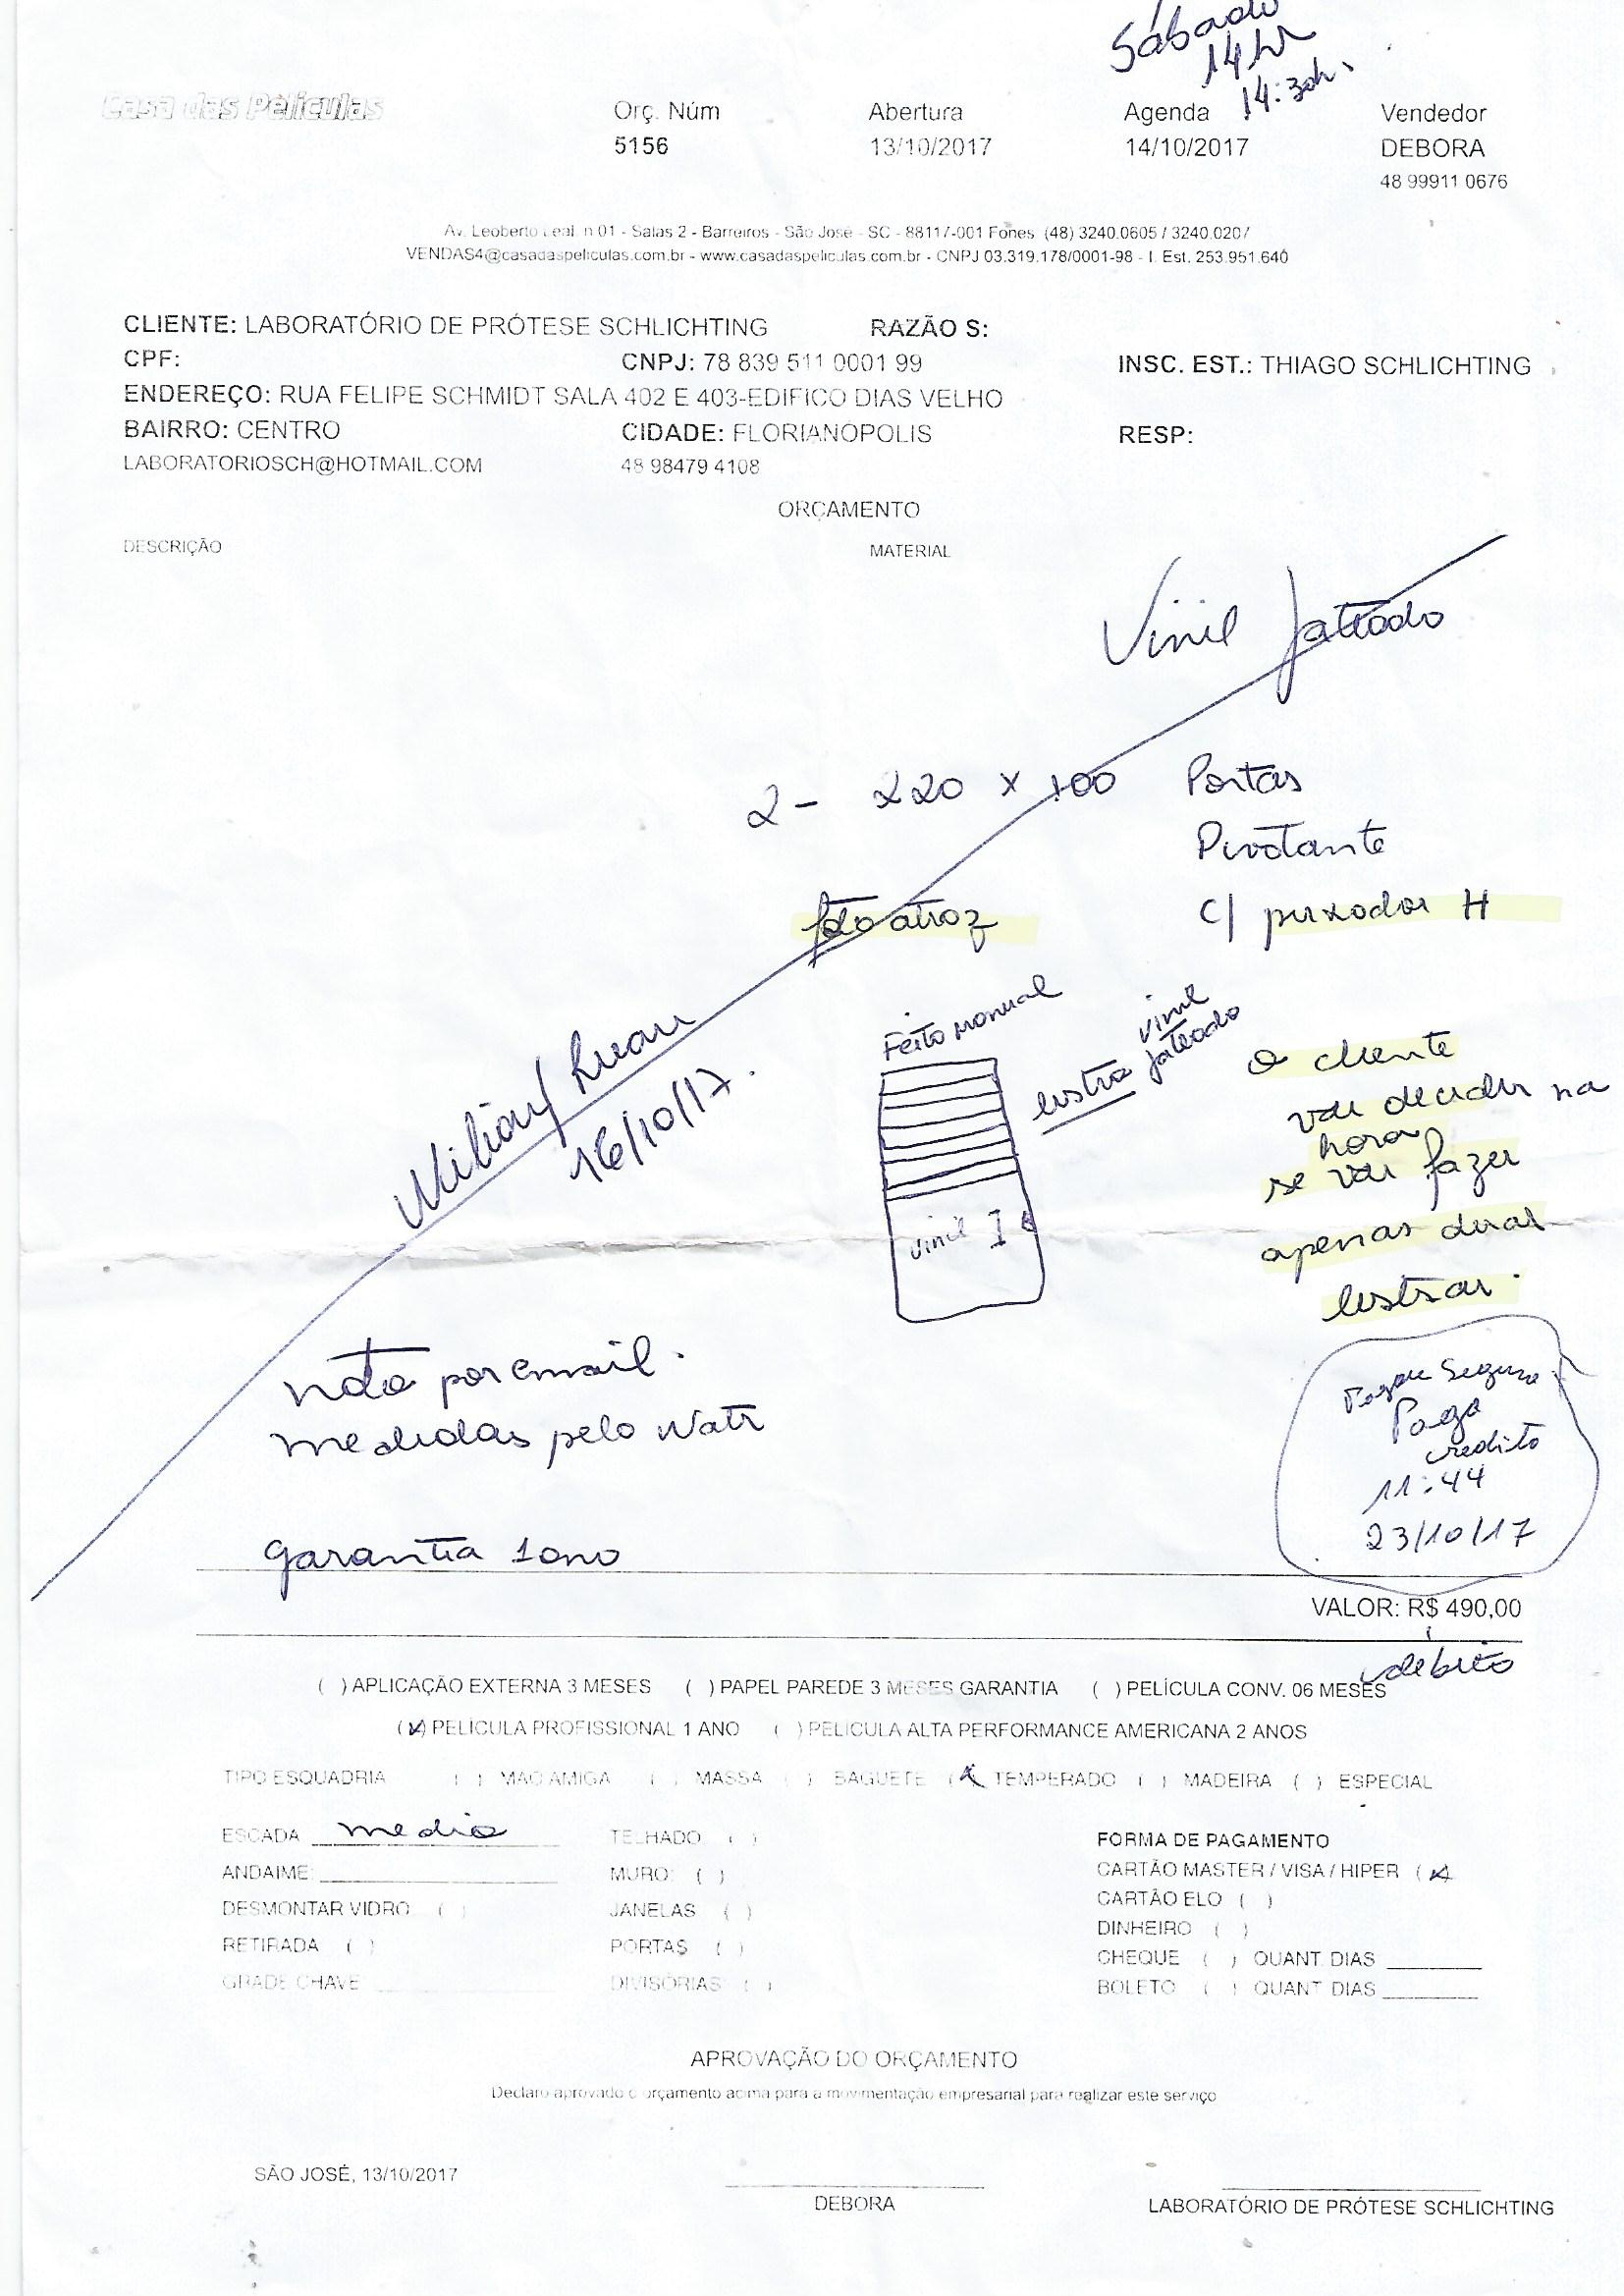 Sábado
14hr
14:30h.
Casa das Películas
Orç. Núm Abertura Agenda Vendedor
5156 13/10/2017 14/10/2017 DEBORA
48 99911 0676
Av. Leoberto Leal. n 01 - Salas 2 - Barreiros - São José - SC - 88117-001 Fones (48) 3240.0605 / 3240.0207
VENDAS4@casadaspeliculas.com.br - www.casadaspeliculas.com.br - CNPJ 03.319.178/0001-98 - I. Est. 253.951.640
CLIENTE: LABORATÓRIO DE PRÓTESE SCHLICHTING RAZÃO S:
CPF: CNPJ: 78 839 511 0001 99 INSC. EST.: THIAGO SCHLICHTING
ENDEREÇO: RUA FELIPE SCHMIDT SALA 402 E 403-EDIFICO DIAS VELHO
BAIRRO: CENTRO CIDADE: FLORIANÓPOLIS RESP:
LABORATORIOSCH@HOTMAIL.COM 48 98479 4108
ORÇAMENTO
DESCRIÇÃO MATERIAL
Vinil Jateado
2 - 220 x 100 Portas
Pivotante
foto atroz C/ puxador H
Feito Manual
listra vinil
jateado
O cliente
vai decidir na
hora
se vai fazer
apenas duas
listras.
vinil I
Luan
16/10/17.
nota por email.
medidas pelo Wats
garantia 1 ano
Pague Seguro
Pago
credito
11:44
23/10/17
VALOR: R$ 490,00
debito
( ) APLICAÇÃO EXTERNA 3 MESES ( ) PAPEL PAREDE 3 MESES GARANTIA ( ) PELÍCULA CONV. 06 MESES
(x) PELÍCULA PROFISSIONAL 1 ANO ( ) PELICULA ALTA PERFORMANCE AMERICANA 2 ANOS
TIPO ESQUADRIA ( ) MAO AMIGA ( ) MASSA ( ) BAGUETE (x) TEMPERADO ( ) MADEIRA ( ) ESPECIAL
ESCADA media TELHADO ( ) FORMA DE PAGAMENTO
ANDAIME: MURO: ( ) CARTÃO MASTER / VISA / HIPER (x)
DESMONTAR VIDRO ( ) JANELAS ( ) CARTÃO ELO ( )
RETIRADA ( ) PORTAS ( ) DINHEIRO ( )
GRADE CHAVE DIVISÓRIAS ( ) CHEQUE ( ) QUANT. DIAS
BOLETO ( ) QUANT DIAS
APROVAÇÃO DO ORÇAMENTO
Declaro aprovado o orçamento acima para a movimentação empresarial para realizar este serviço
SÃO JOSÉ, 13/10/2017
DEBORA LABORATÓRIO DE PRÓTESE SCHLICHTING